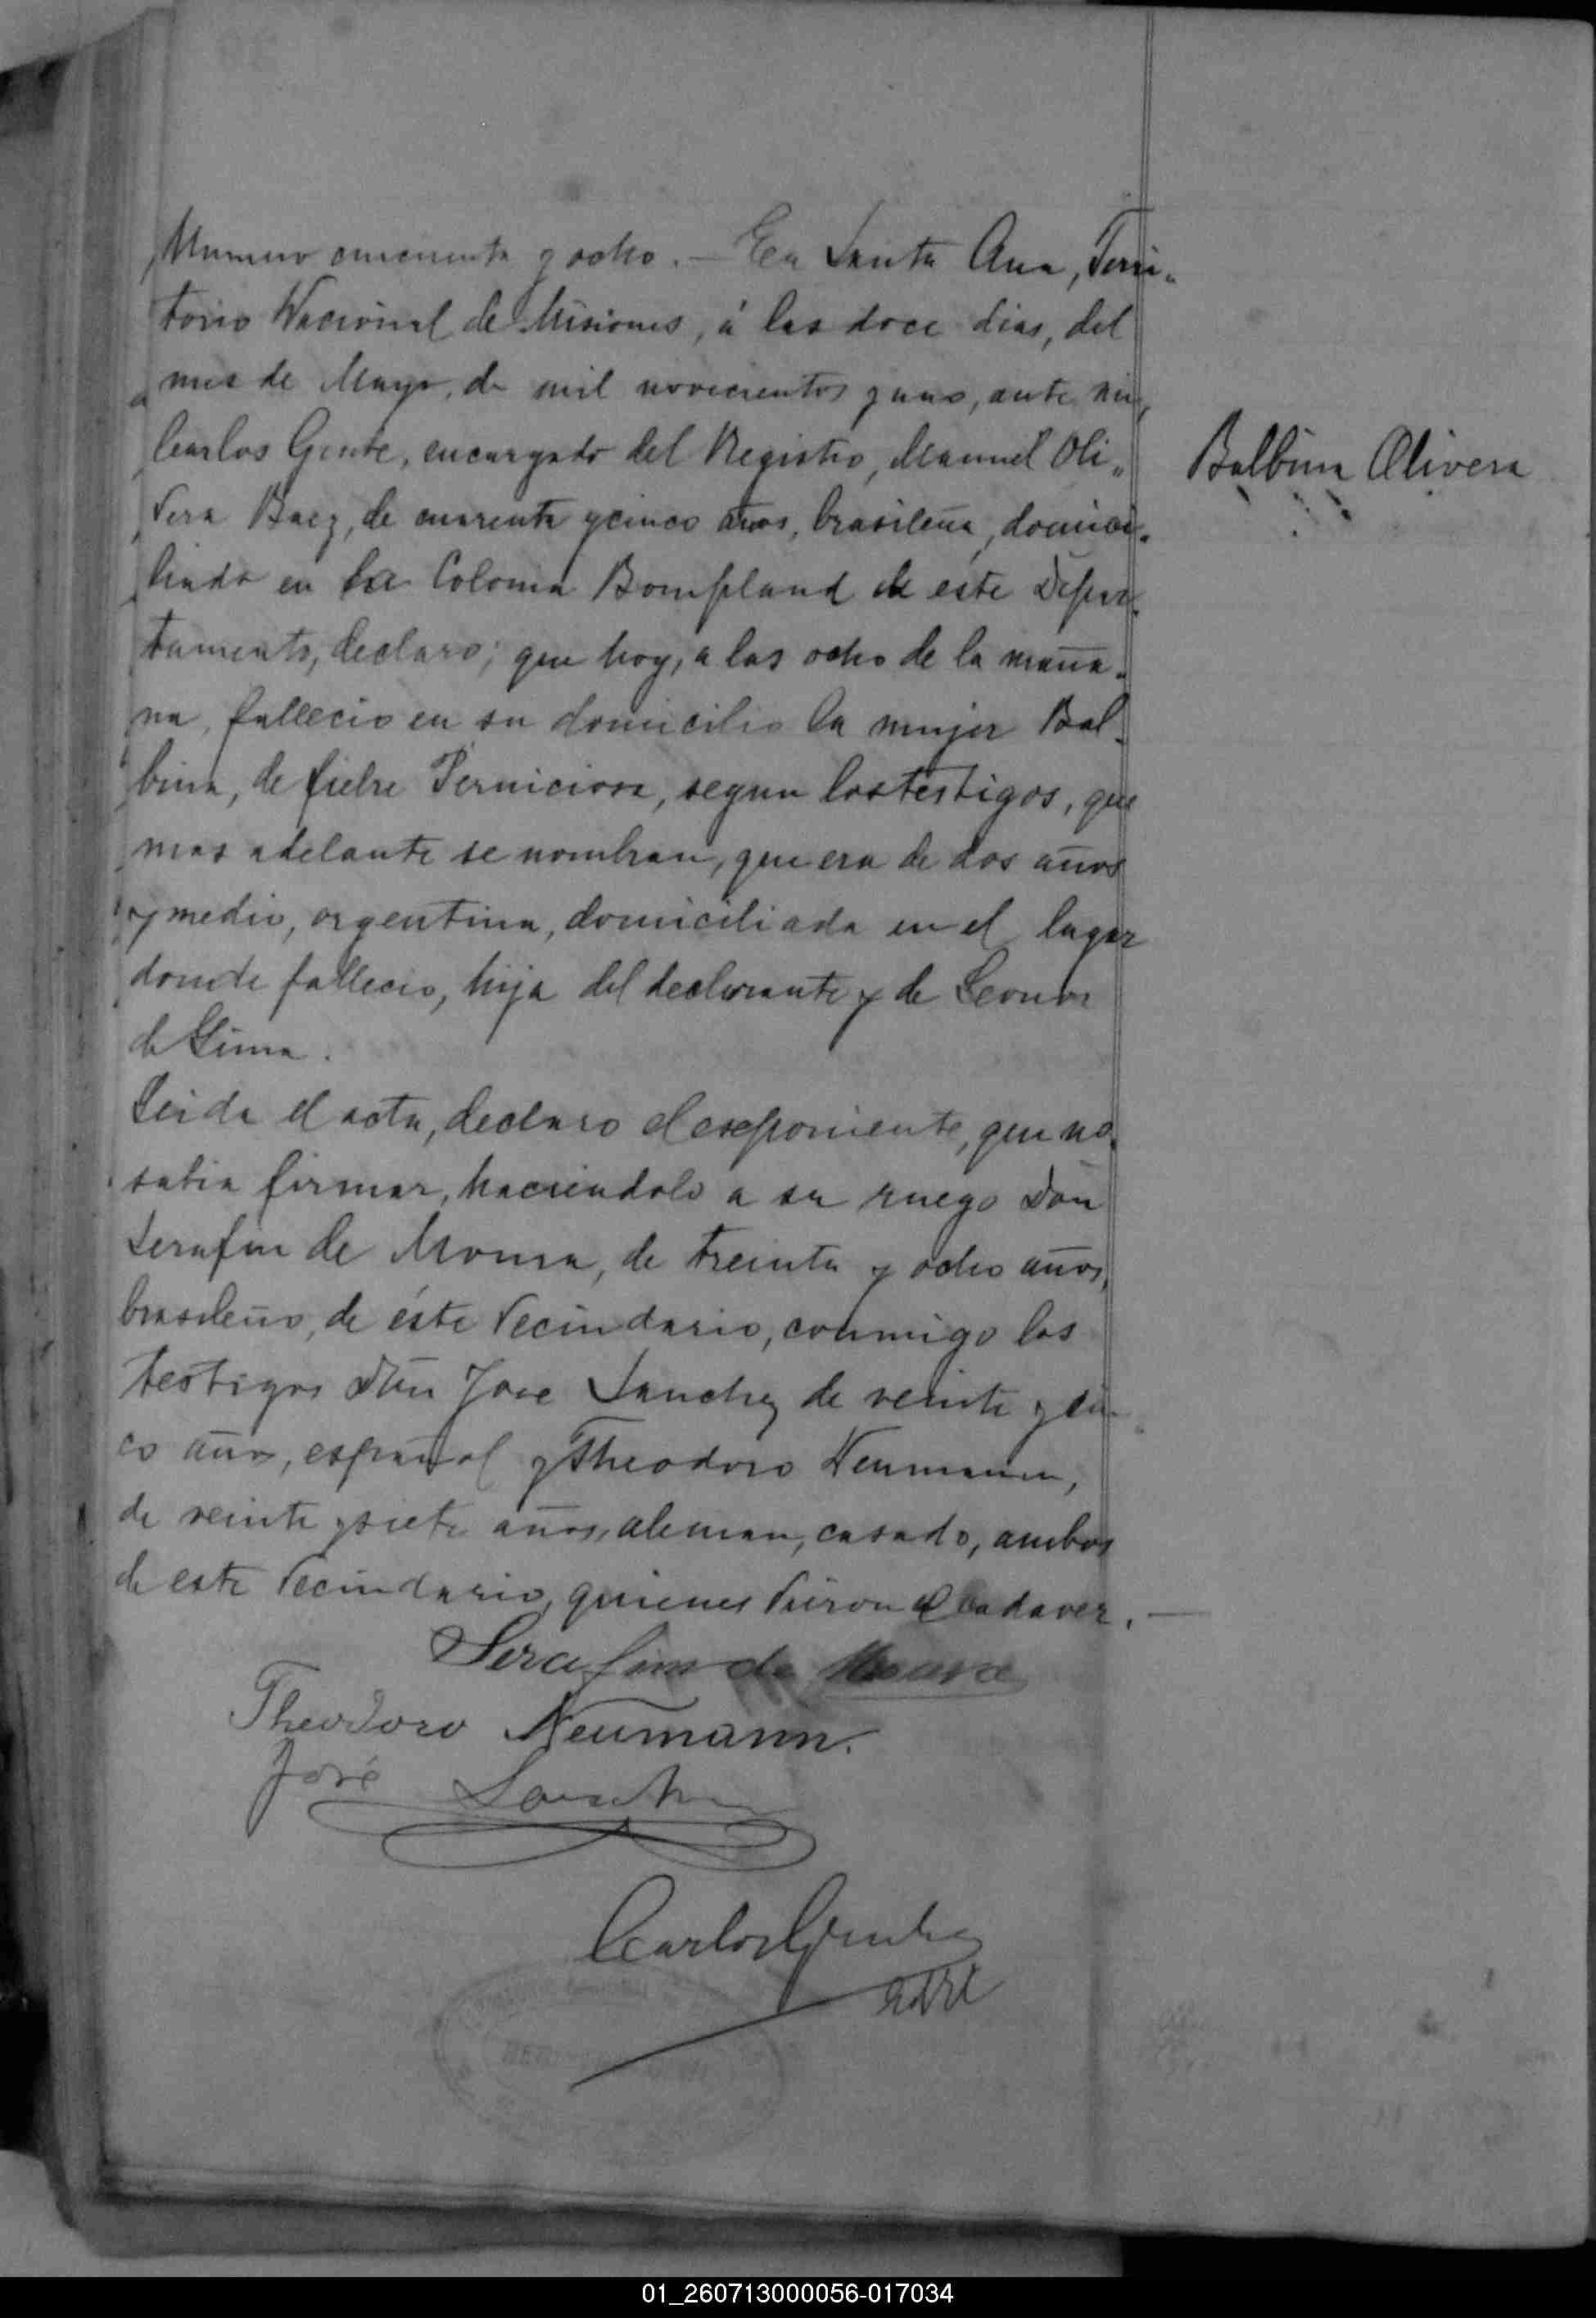 Numero cincuenta y ocho. — En Santa Ana, Terri-
torio Nacional de Misiones, á las doce dias, del
mes de Mayo, de mil novecientos y uno, ante mi,
Carlos Gente, encargado del Registro, Manuel Oli-
Balbina Olivera
vera Baez, de cuarenta y cinco años, brasileña, domici-
liado en la Colonia Bompland de este Depar-
tamento, declaro; que hoy, a las ocho de la maña-
na, fallecio en su domicilio la mujer Bal-
bina, de fiebre Perniciosa, segun los testigos, que
mas adelante se nombran, que era de dos años
y medio, argentina, domiciliada en el lugar
donde fallecio, hija del declarante y de Leonor
de Lima.
Leida el acta, declaro el exponiente, que no
sabia firmar, haciendolo a su ruego Don
Serafin de Moura, de treinta y ocho años,
brasileño, de éste vecindario, conmigo los
testigos Don Jose Sanchez de veinte y cin-
co años, español y Theodoro Neumann,
de veinte y siete años, aleman, casado, ambos
de este vecindario, quienes vieron el cadaver. —
Serafim de Moura
Theodoro Neumann.
José Sanchez
Carlos
01_260713000056-017034